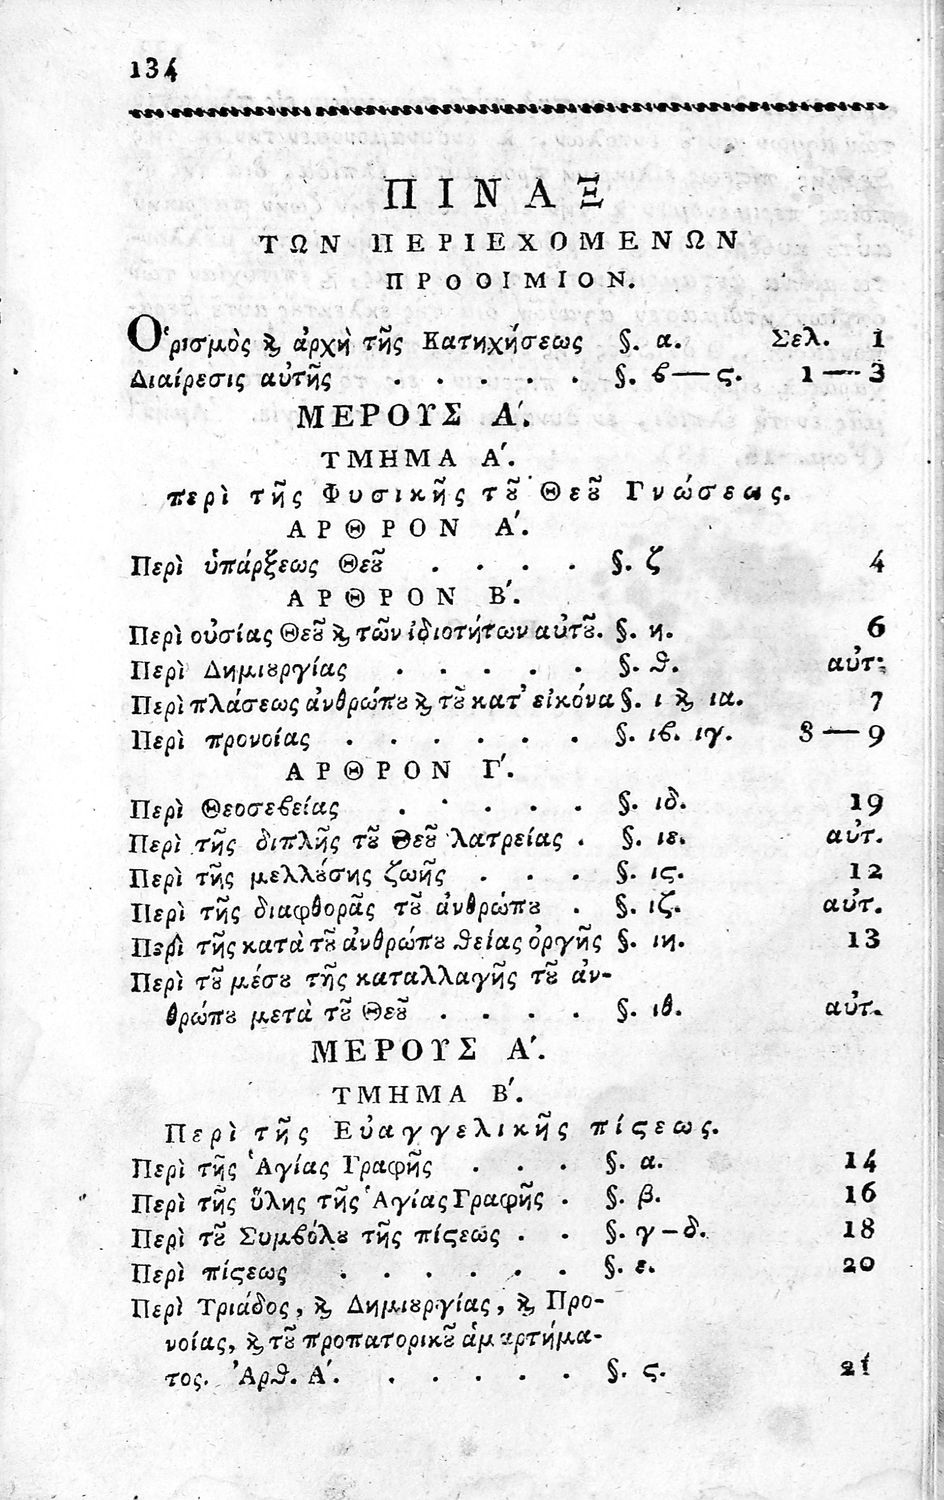 134
ΠΙΝΑΞ
ΤΩΝ ΠΕΡΙΕΧΟΜΕΝΩΝ
ΠΡΟΟΙΜΙΟΝ.
Ὁρισμὸς ϗ ἀρχὴ τῆς Κατηχήσεως §. α. Σελ. 1
Διαίρεσις αὐτῆς . . . . . §. ϐ — ϛ. 1 — 3
ΜΕΡΟΥΣ Α΄.
ΤΜΗΜΑ Α΄.
περὶ τῆς Φυσικῆς τȣ͂ Θεȣ͂ Γνώσεως.
ΑΡΘΡΟΝ Α΄.
Περὶ ὑπάρξεως Θεȣ͂ . . . . §. ζ 4
ΑΡΘΡΟΝ Β΄.
Περὶ οὐσίας Θεȣ͂ ϗ τῶν ἰδιοτήτων αὐτȣ͂. §. η. 6
Περὶ Δημιȣργίας . . . . . §. ϑ. αὐτ:
Περὶ πλάσεως ἀνθρώπȣ ϗ τȣ͂ κατ' εἰκόνα §. ι ϗ ια. 7
Περὶ προνοίας . . . . . . §. ιϐ. ιγ. 8 — 9
ΑΡΘΡΟΝ Γ΄.
Περὶ Θεοσεϐείας . . . . . §. ιδ. 19
Περὶ τῆς διπλῆς τȣ͂ Θεȣ͂ λατρείας . §. ιε. αὐτ.
Περὶ τῆς μελλȣ́σης ζωῆς . . . §. ιϛ. 12
Περὶ τῆς διαφθορᾶς τȣ͂ ἀνθρώπȣ . §. ιζ. αὐτ.
Περὶ τῆς κατὰ τȣ͂ ἀνθρώπȣ ϑείας ὀργῆς §. ιη. 13
Περὶ τȣ͂ μέσȣ τῆς καταλλαγῆς τȣ͂ ἀν-
θρώπȣ μετὰ τȣ͂ Θεȣ͂ . . . . §. ιθ. αὐτ.
ΜΕΡΟΥΣ Α΄.
ΤΜΗΜΑ Β΄.
Περὶ τῆς Εὐαγγελικῆς πίϛεως.
Περὶ τῆς Ἁγίας Γραφῆς . . . §. α. 14
Περὶ τῆς ὕλης τῆς Ἁγίας Γραφῆς . §. β. 16
Περὶ τȣ͂ Συμϐόλȣ τῆς πίϛεως . . §. γ – δ. 18
Περὶ πίϛεως . . . . . . §. ε. 20
Περὶ Τριάδος, ϗ Δημιȣργίας, ϗ Προ-
νοίας, ϗ τȣ͂ προπατορικȣ͂ ἁμαρτήμα-
τος. Ἀρϑ. Α΄. . . . . . §. ϛ. 21